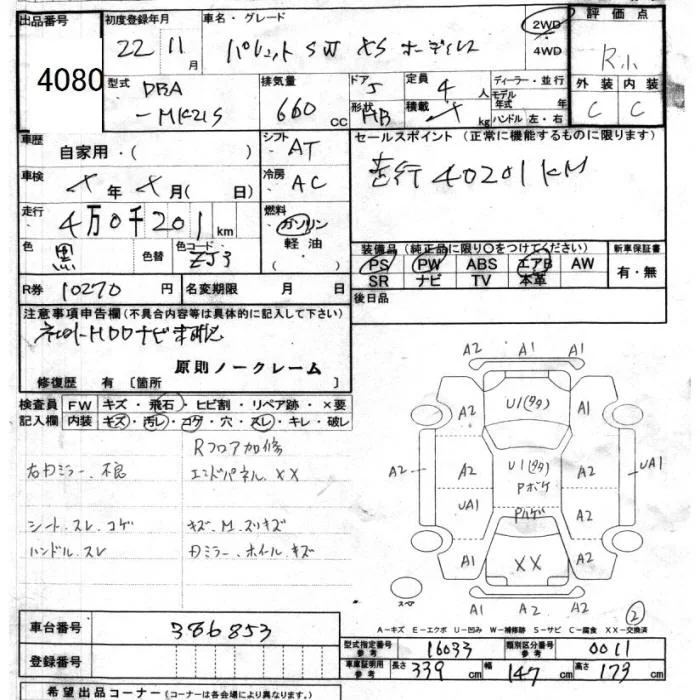 出品番号 4080
初度登録年月 22 11月
車名・グレード パレットSW XS ホーディルス
2WD・4WD
評価点 R小
外装 C 内装 C
型式 DBA-MK21S
排気量 660cc
ドア 5 形状 HB
定員 4人 積載 kg
ディーラー・並行
モデル年式 年
ハンドル 左・右
車歴 自家用・( )
シフト AT
セールスポイント (正常に機能するものに限ります)
走行40201KM
車検 年 月( 日)
冷房 AC
走行 4万0千201km
燃料 ガソリン 軽油 ( )
色 黒 色替 色コード ZJ3
装備品(純正品に限り○をつけてください)
PS PW ABS エアB AW
SR ナビ TV 本革
新車保証書 有・無
R券 10270円 名変期限 月 日
後日品
注意事項申告欄(不具合内容等は具体的に記入して下さい)
HDDナビ
原則ノークレーム
修復歴 有〔箇所 〕
検査員記入欄
FW キズ・飛石・ヒビ割・リペア跡・×要
内装 キズ・汚レ・コゲ・穴・スレ・キレ・破レ
Rフロア加修
右ドミラー、不良 エンドパネル、XX
シート、スレ、コゲ キズ、M、スリキズ
ハンドル、スレ ドミラー、ホイール、キズ
A2 A1 A1
A2 U1(タタ) A1
A2 A2 U1(タタ) Pボケ A2 UA1
UA1 Pハゲ A2
A1 XX A2
スペア A1 A2 A2
②
A−キズ E−エクボ U−凹み W−補修跡 S−サビ C−腐食 XX−交換済
車台番号 386853
型式指定番号 参考 16033 類別区分番号 参考 0011
登録番号
車庫証明用 参考 長さ 339cm 幅 147cm 高さ 173cm
希望出品コーナー (コーナーは各会場により異なります。)